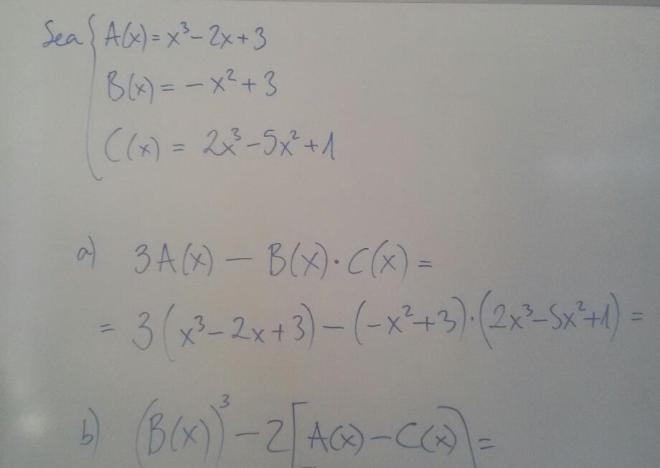 Sea { A(x) = x³ - 2x + 3
B(x) = - x² + 3
C(x) = 2x³ - 5x² + 1
a) 3A(x) - B(x) · C(x) =
= 3(x³ - 2x + 3) - (-x² + 3) · (2x³ - 5x² + 1) =
b) (B(x))³ - 2[A(x) - C(x)] =